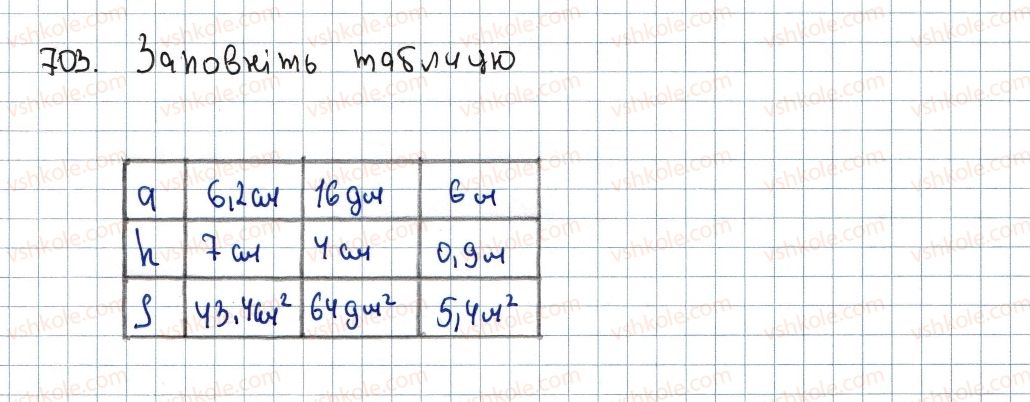 703. Заповніть таблицю
a 6,2см 16дм 6м
h 7см 4см 0,9м
S 43,4см² 64дм² 5,4м²